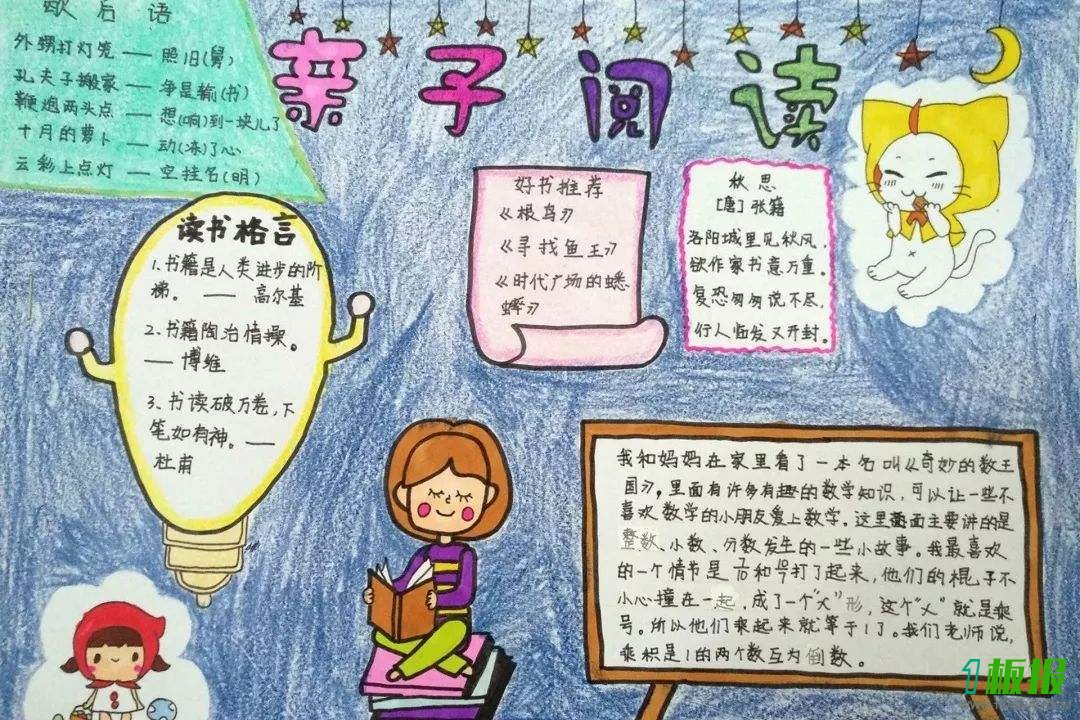 歇后语
外甥打灯笼 —— 照旧(舅)
孔夫子搬家 —— 争是输(书)
鞭炮两头点 —— 想(响)到一块儿了
十月的萝卜 —— 动(冻)了心
云彩上点灯 —— 空挂名(明)
亲子阅读
读书格言
1.书籍是人类进步的阶
梯。 —— 高尔基
2.书籍陶冶情操。
—— 博维
3.书读破万卷,下
笔如有神。——
杜甫
好书推荐
《根鸟》
《寻找鱼王》
《时代广场的蟋
蟀》
秋思
[唐]张籍
洛阳城里见秋风,
欲作家书意万重。
复恐匆匆说不尽,
行人临发又开封。
我和妈妈在家里看了一本名叫《奇妙的数王
国》,里面有许多有趣的数学知识,可以让一些不
喜欢数学的小朋友爱上数学。这里面主要讲的是
整数、小数、分数发生的一些小故事。我最喜欢
的一个情节是 和 打了起来,他们的棍子不
小心撞在一起,成了一个"×"形,这个"×"就是乘
号。所以他们乘起来就等于1了。我们老师说,
乘积是1的两个数互为倒数。
1板报